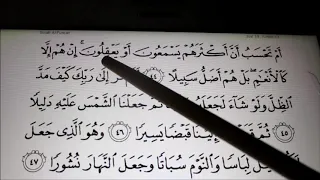 أَمْ تَحْسَبُ أَنَّ أَكْثَرَهُمْ يَسْمَعُونَ أَوْ يَعْقِلُونَ ۚ إِنْ هُمْ إِلَّا
كَالْأَنْعَٰمِ بَلْ هُمْ أَضَلُّ سَبِيلًا ٤٤ إِلَىٰ رَبِّكَ كَيْفَ مَدَّ
الظِّلَّ وَلَوْ شَاءَ لَجَعَلَهُ ثُمَّ جَعَلْنَا الشَّمْسَ عَلَيْهِ دَلِيلًا
٤٥ ثُمَّ إِلَيْنَا قَبْضًا يَسِيرًا ٤٦ وَهُوَ الَّذِي جَعَلَ
لِبَاسًا وَالنَّوْمَ سُبَاتًا وَجَعَلَ النَّهَارَ نُشُورًا ٤٧